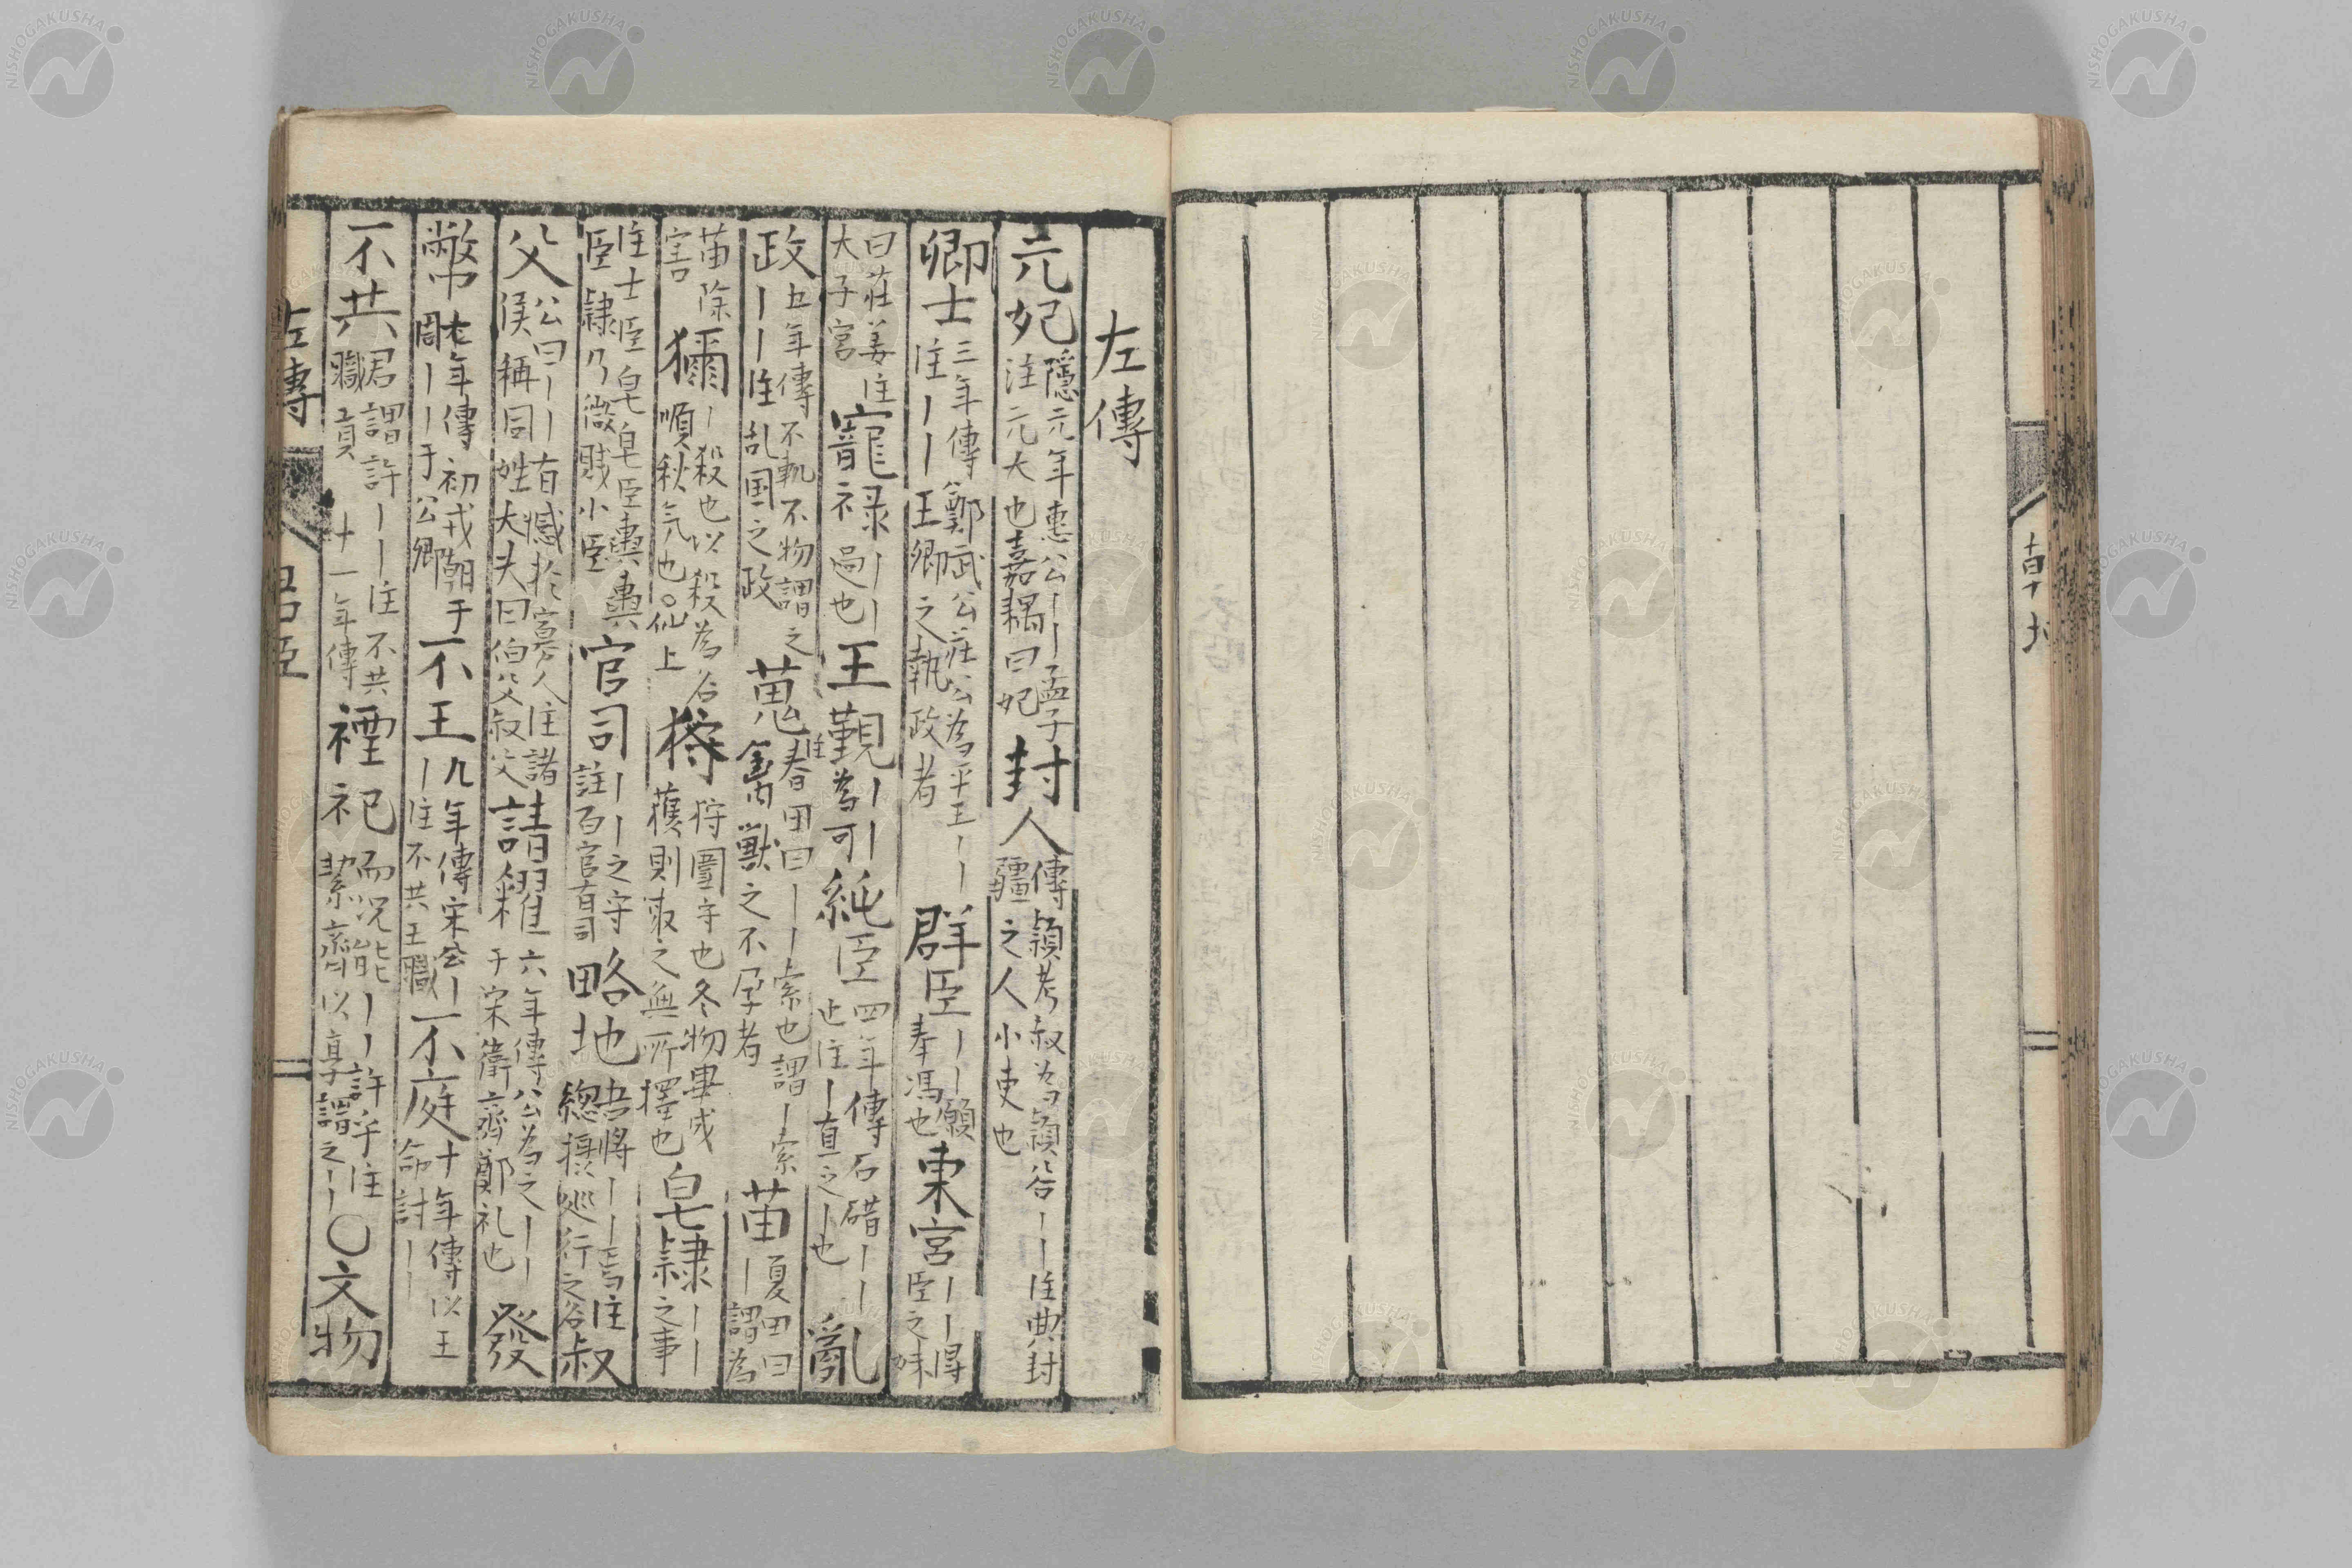 左傳
元妃 隱元年惠公丨丨孟子
注元大也嘉耦曰妃
封人 傳潁考叔為潁谷丨丨注典封
疆之人小吏也
卿士 三年傳鄭武公莊公為平王丨丨
注丨丨王卿之執政者
群臣 丨丨願
奉馮也
東宮 丨丨得
臣之妹
曰莊姜注
大子宮
寵祿 丨丨
過也
王覲 丨丨
為可
純臣 四年傳石碏丨丨
也注丨直之丨也
亂
政 五年傳不軌不物謂之
丨丨注乱国之政
蒐 春田曰丨丨索也謂丨索
禽獸之不孕者
苗 夏田曰
丨謂為
苗除
害
獮 丨殺也以殺為名
順秋気也○仙上
狩 狩圍守也冬物畢成
獲則取之無所擇也
皂隸 丨丨
之事
注士臣皂皂臣輿輿
臣隷乃微賤小臣
官司 丨丨之守
註百官有司
略地 吾將丨丨焉注
總攝巡行之名
叔
父 公曰丨丨有憾於寡人注諸
侯稱同姓大夫曰伯父叔父
請糴 六年傳公為之丨丨
于宋衛齊鄭礼也
發
幣 七年傳初戎朝于
周丨丨于公卿
不王 九年傳宋公丨
丨注不共王職
不庭 十年傳以王
命討丨丨
不共 君謂許丨丨注不共
職貢 十一年傳
禋祀 而况能丨丨許乎注
絜齊以享謂之丨丨
○文物
左傳
君臣